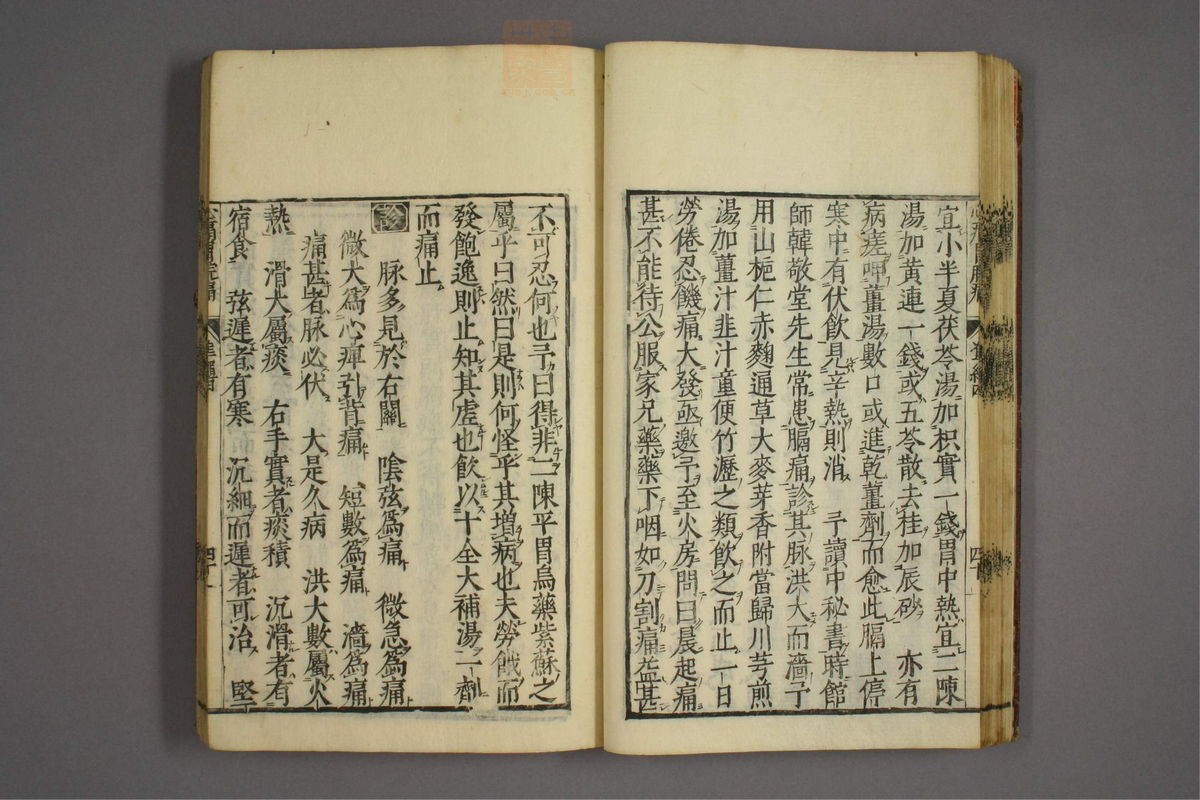 宜小半夏茯苓湯加枳實一錢胃中熱宜二陳
湯加黄連一錢或五苓散去桂加辰砂　亦有
病嗟呻薑湯數口或進乾薑劑而愈此膈上停
寒中有伏飲見辛熱則消　予讀中秘書時館
師韓敬堂先生常患膈痛診其脉洪大而濇予
用山梔仁赤麯通草大麥芽香附當歸川芎煎
湯加薑汁韭汁童便竹瀝之類飲之而止一日
勞倦忍饑痛大發亟邀予至火房問曰晨起痛
甚不能待公服家兄藥藥下咽如刀割痛益甚
不可忍何也予曰得非二陳平胃烏藥紫蘇之
屬乎曰然曰是則何怪乎其増病也夫勞餓而
發飽逸則止知其虚也飲以十全大補湯二劑
而痛止
診　脉多見於右關　陰弦爲痛　微急爲痛
微大爲心痺引背痛　短數爲痛　濇爲痛
痛甚者脉必伏　大是久病　洪大數屬火
熱　滑大屬痰　右手實者痰積　沉滑者有
宿食　弦遲者有寒　沉細而遲者可治　堅